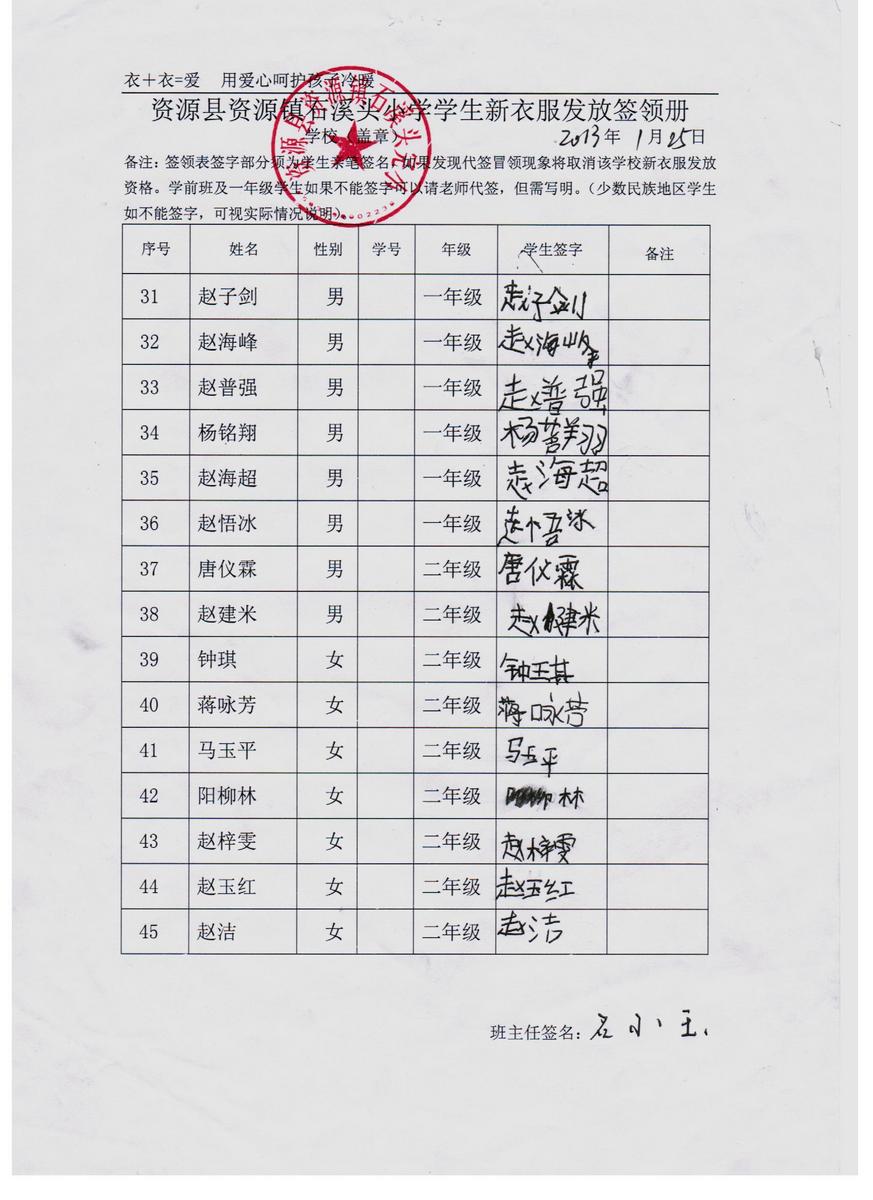 衣+衣=爱 用爱心呵护孩子冷暖
资源县资源镇石溪头小学学生新衣服发放签领册
学校(盖章) 2013年1月25日
备注:签领表签字部分须为学生亲笔签名,如果发现代签冒领现象将取消该学校新衣服发放
资格。学前班及一年级学生如果不能签字可以请老师代签,但需写明。(少数民族地区学生
如不能签字,可视实际情况说明)。
序号 姓名 性别 学号 年级 学生签字 备注
31 赵子剑 男 一年级 赵子剑
32 赵海峰 男 一年级 赵海峰
33 赵普强 男 一年级 赵普强
34 杨铭翔 男 一年级 杨翔
35 赵海超 男 一年级 赵海超
36 赵悟冰 男 一年级 赵悟冰
37 唐仪霖 男 二年级 唐仪霖
38 赵建米 男 二年级 赵建米
39 钟琪 女 二年级 钟琪
40 蒋咏芳 女 二年级 蒋咏芳
41 马玉平 女 二年级 马玉平
42 阳柳林 女 二年级 柳林
43 赵梓雯 女 二年级 赵梓雯
44 赵玉红 女 二年级 赵玉红
45 赵洁 女 二年级 赵洁
班主任签名: